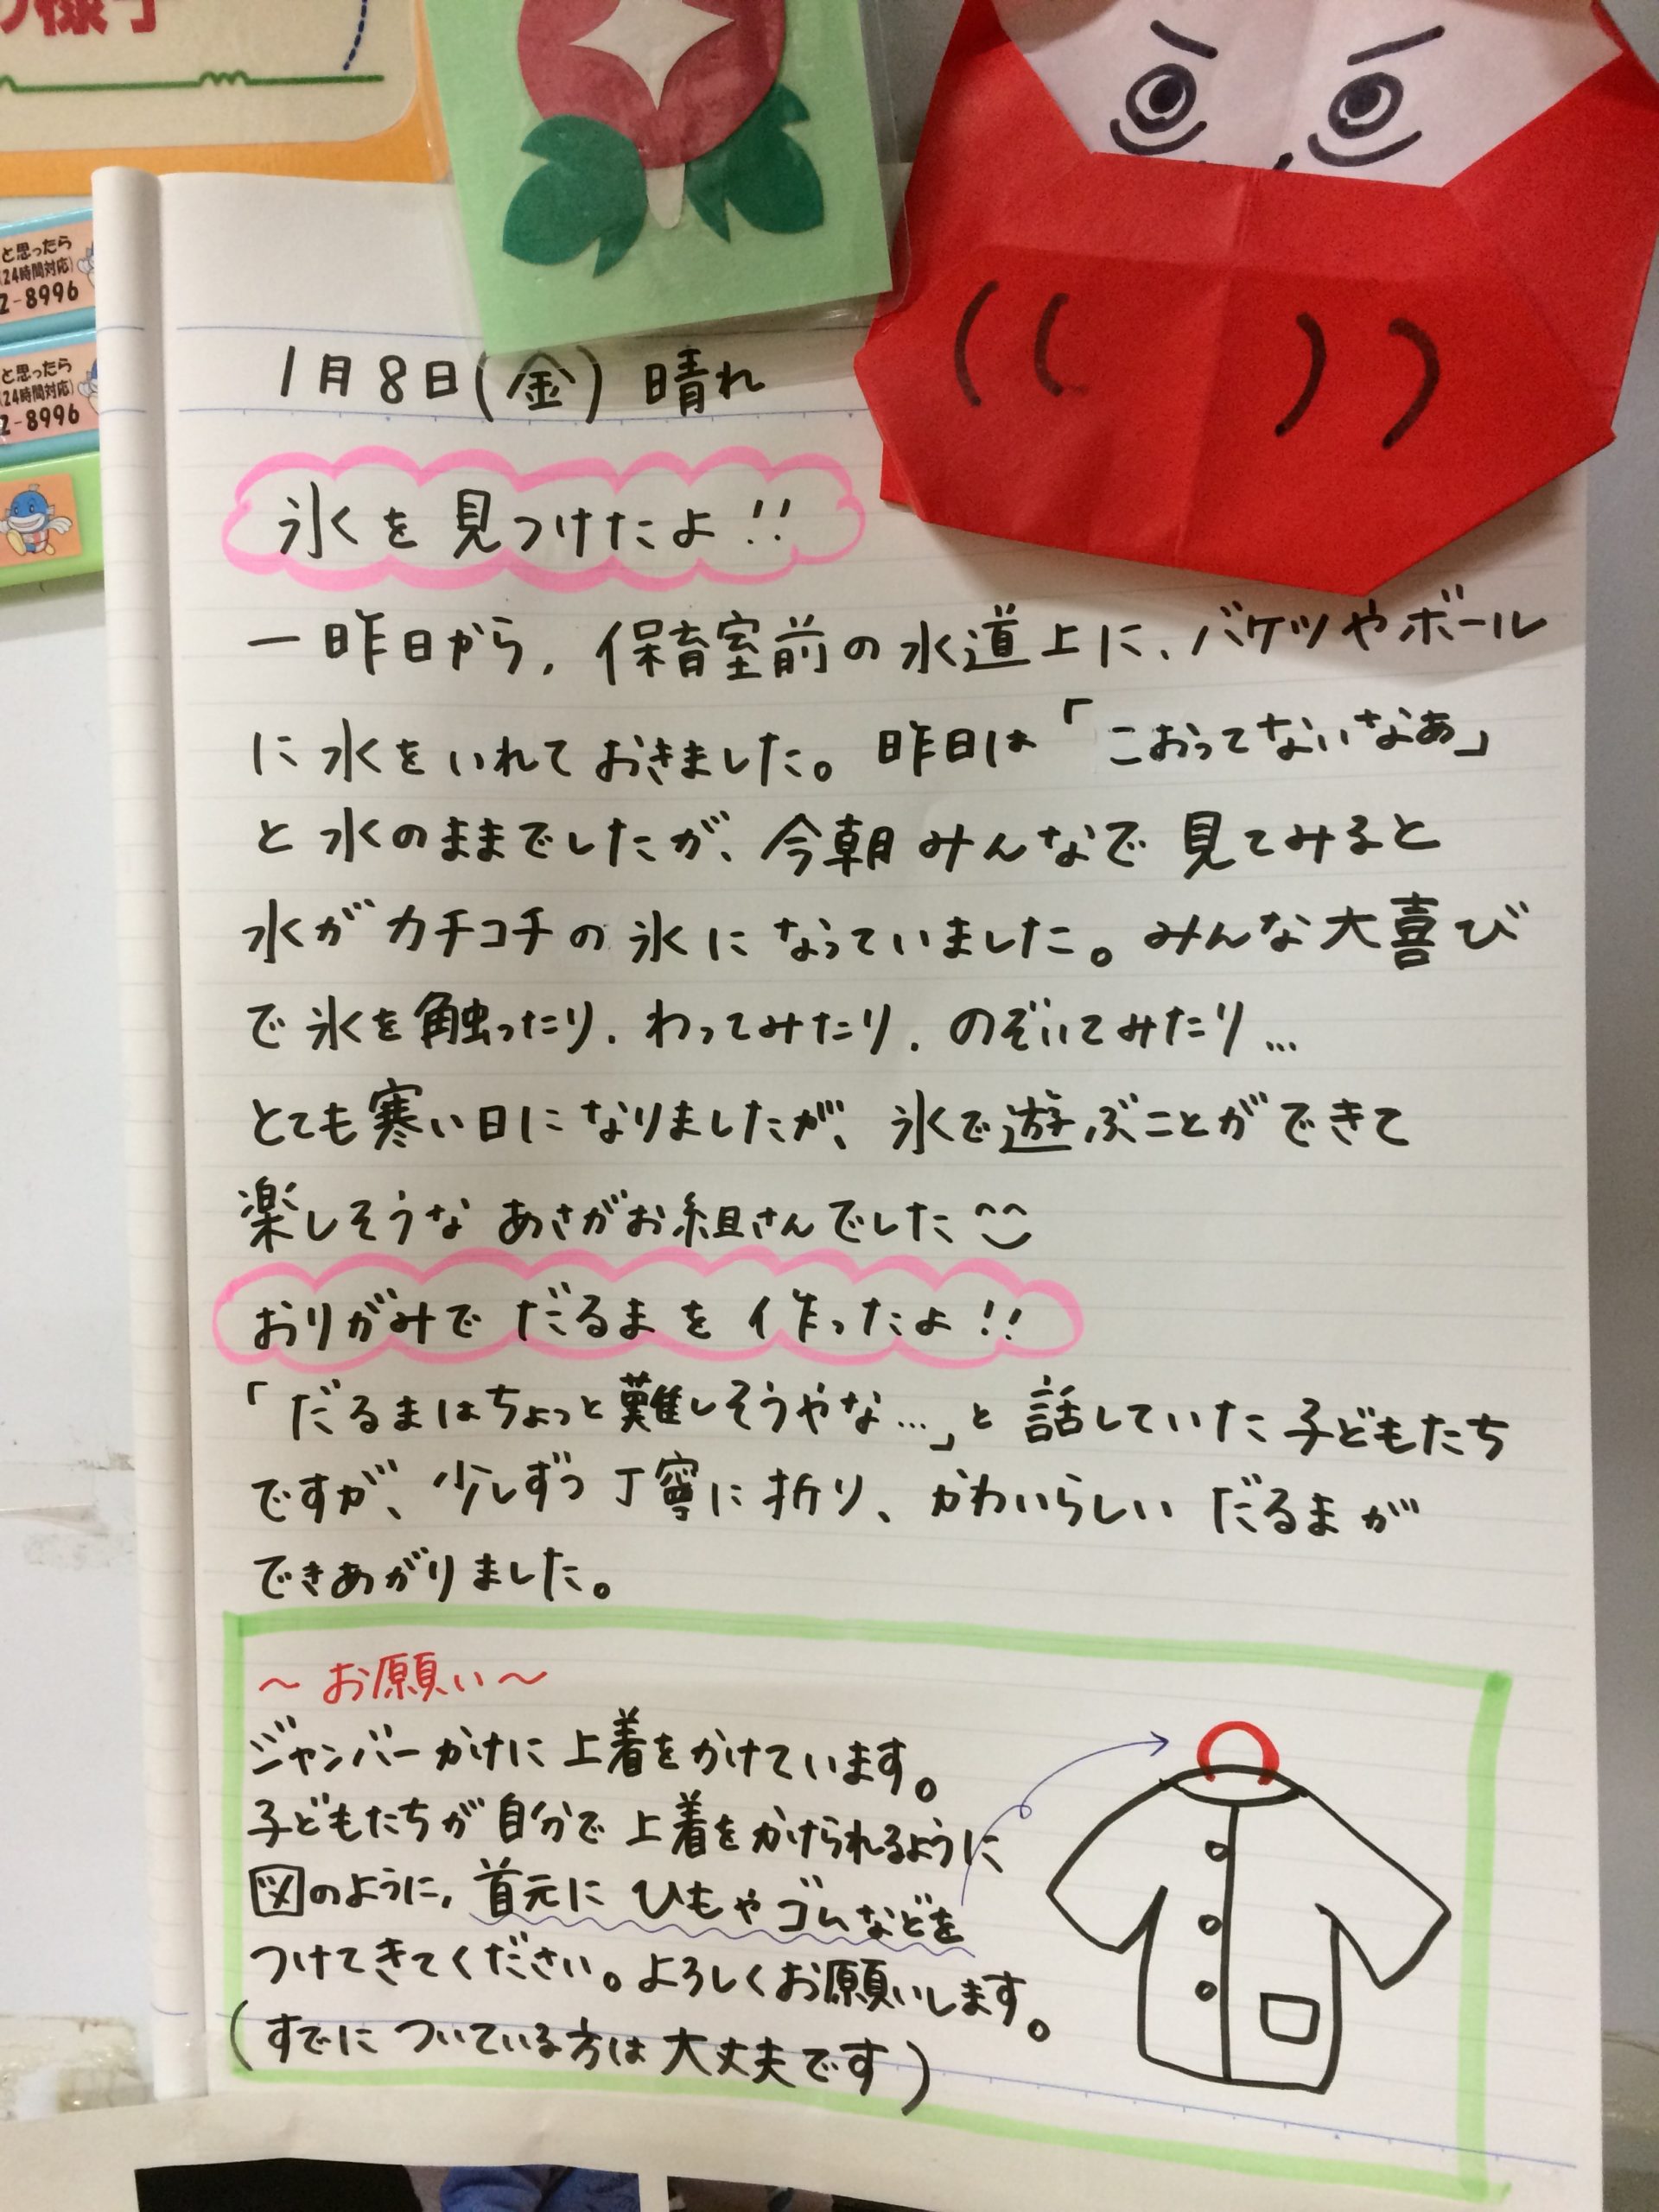 の様子
と思ったら
(24時間対応)
2-8996
と思ったら
(24時間対応)
2-8996
1月8日(金) 晴れ
氷を見つけたよ!!
一昨日から、保育室前の水道上に、バケツやボール
に水をいれておきました。昨日は「こおってないなあ」
と水のままでしたが、今朝みんなで見てみると
水がカチコチの氷になっていました。みんな大喜び
で氷を触ったり、わってみたり、のぞいてみたり…
とても寒い日になりましたが、氷で遊ぶことができて
楽しそうなあさがお組さんでした
おりがみでだるまを作ったよ!!
「だるまはちょっと難しそうやな…」と話していた子どもたち
ですが、少しずつ丁寧に折り、かわいらしいだるまが
できあがりました。
～お願い～
ジャンバーかけに上着をかけています。
子どもたちが自分で上着をかけられるように
図のように、首元にひもやゴムなどを
つけてきてください。よろしくお願いします。
(すでについている方は大丈夫です)